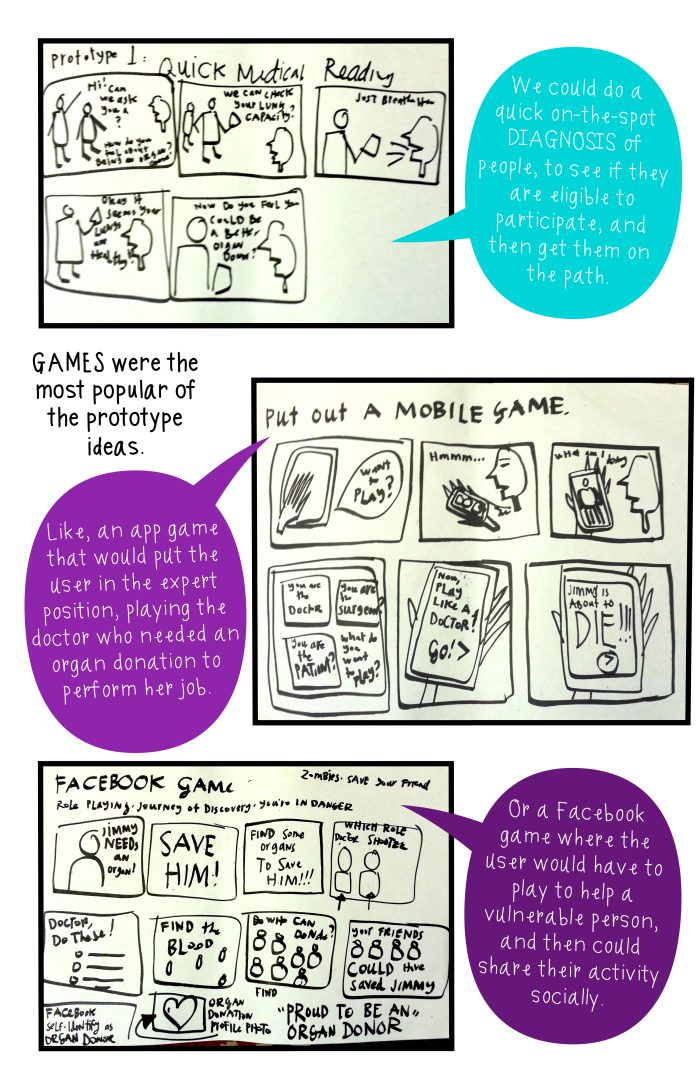 Prototype 1:
Quick Medical Reading
Hi! Can
we ask
you a
?
How do you
feel about
being an organ
donor?
We can check
your lung
capacity?
Just Breathe Here
Okay it
seems your
lungs
are
Healthy
Now Do you Feel you
could be
a better
organ
Donor?
We could do a
quick on-the-spot
DIAGNOSIS of
people, to see if they
are eligible to
participate, and
then get them on
the path.
GAMES were the
most popular of
the prototype
ideas.
Like, an app game
that would put the
user in the expert
position, playing the
doctor who needed an
organ donation to
perform her job.
Put out A MOBILE GAME.
want
to
PLAY?
Hmmm...
what am I doing
you are
the
Doctor
you are
the
surgeon
you are
the
PATIENT?
what do
you
want
to
play?
Now,
PLAY
LIKE A
DOCTOR!
GO! >
JIMMY is
About to
DIE!!!
>
FACEBOOK GAME
Zombies. SAVE your Friend
Role PLAYING. Journey of Discovery. You're IN DANGER
JIMMY
NEEDS
an
organ!
SAVE
HIM!
FIND some
organs
To Save
HIM!!!
WHICH ROLE
Doctor SHOOTER
DOCTOR,
Do These!
FIND the
BLOOD
WHO CAN
Donate?
FIND
your FRIENDS
COULD Have
saved JIMMY
FACEBOOK
self-identify as
ORGAN DONOR
ORGAN
DONATION
PROFILE PHOTO
"PROUD TO BE AN"
ORGAN DONOR
Or a Facebook
game where the
user would have to
play to help a
vulnerable person,
and then could
share their activity
socially.